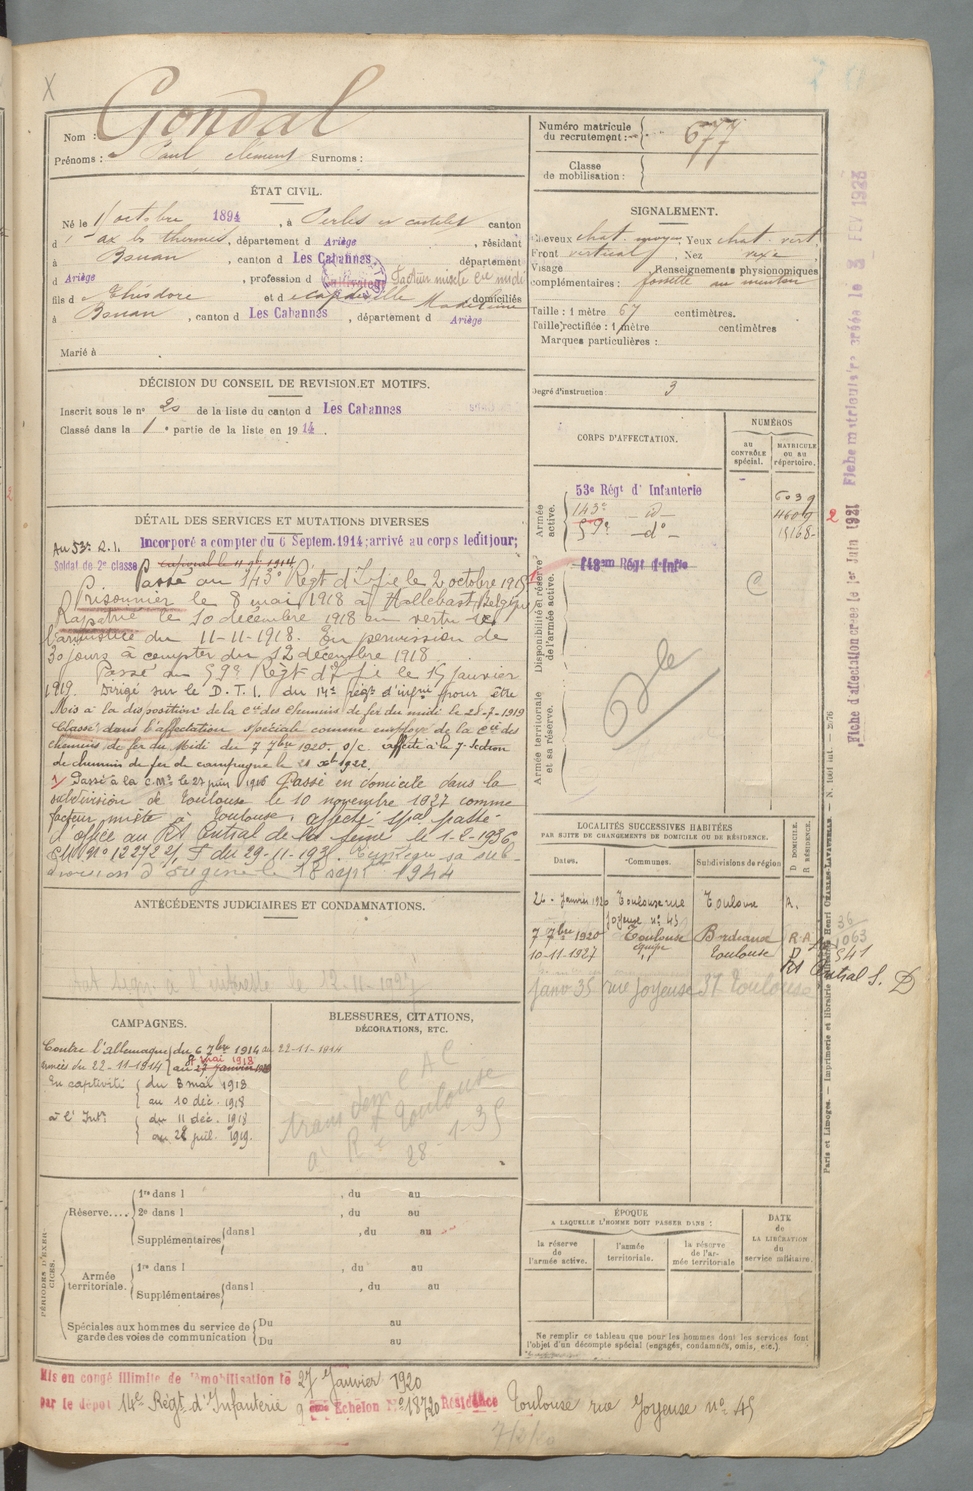 X
Nom : Gondal
Prénoms : Paul clément Surnoms :
Numéro matricule du recrutement : 677
Classe de mobilisation :
ÉTAT CIVIL.
Né le 1 octobre 1894, à Perles et castelet canton
d' ax les thermes, département d Ariège, résidant
à Bouan, canton d Les Cabannes, département
d Ariège, profession d Cultivateur Facteur mixte cie midi
fils d Théodore et d Madeleine domiciliés
à Bouan, canton d Les Cabannes, département d Ariège
Marié à
SIGNALEMENT.
Cheveux chat. moyen, Yeux chat. vert,
Front vertical, Nez rexe
Visage Renseignements physionomiques
complémentaires : fossette au menton
Taille : 1 mètre 67 centimètres.
Taille rectifiée : 1 mètre centimètres
Marques particulières :
Degré d'instruction : 3
DÉCISION DU CONSEIL DE REVISION ET MOTIFS.
Inscrit sous le n° 20 de la liste du canton d Les Cabannes
Classé dans la 1e partie de la liste en 1914.
DÉTAIL DES SERVICES ET MUTATIONS DIVERSES
Au 53e R.I. Incorporé a compter du 6 Septem. 1914; arrivé au corps ledit jour;
Soldat de 2e classe
Passé au 143e Régt d'Infie le 2 octobre 1915
Prisonnier le 8 mai 1918 à Hollebast, Belgique
Rapatrié le 10 décembre 1918 en vertu de
l'armistice du 11-11-1918. En permission de
30 jours à compter du 12 décembre 1918
Passé au 59e Régt d'Infie le 15 janvier
1919. Dirigé sur le D.T.I. du 14e régt d'infie pour être
Mis à la disposition de la Cie des Chemins de fer du midi le 28-7-1919
Classé dans l'affectation spéciale comme employé de la Cie des
chemins de fer du Midi du 7 7bre 1920. S/c. affecté à la 7e Section
de chemin de fer de campagne le
1/ Passé à la C.M. le 27 juin 1916 Passé en domicile dans la
subdivision de Toulouse le 10 novembre 1927 comme
facteur mixte à Toulouse, affecté spal passé
d'office au Rt Central de la Seine le 1-2-1936
du 29-11-1935. Réintègre sa sub-
division d'origine le 18 sept 1944
CORPS D'AFFECTATION.
NUMÉROS
au CONTRÔLE spécial.
MATRICULE ou au répertoire.
Armée active.
53e Régt d' Infanterie 6039
143e d° 4609
59e d° 15168
Disponibilité et réserve de l'armée active.
143em Régt d'Infie
C
Armée territoriale et sa réserve.
ANTÉCÉDENTS JUDICIAIRES ET CONDAMNATIONS.
LOCALITÉS SUCCESSIVES HABITÉES
PAR SUITE DE CHANGEMENTS DE DOMICILE OU DE RÉSIDENCE.
Dates. Communes. Subdivisions de région D DOMICILE. R RÉSIDENCE.
26 Janvier 1920 Toulouse rue Joyeuse n° 45 Toulouse R.
7 7bre 1920 Toulouse Bordeaux R.A.
10-11-1927 Toulouse
Janv 35 rue Joyeuse 37 Toulouse
Rt Central S. D
CAMPAGNES.
Contre l'allemagne du 6 7bre 1914 au 22-11-1914
armées du 22-11-1914 au 27 janvier 1920
8 mai 1918
En captivité du 8 mai 1918
au 10 déc. 1918
à l'Intr du 11 déc. 1918
au 28 juil. 1919.
BLESSURES, CITATIONS,
DÉCORATIONS, ETC.
CAC
trans dem
à Rt Toulouse
28-1-35
PÉRIODES D'EXERCICES.
Réserve.... 1re dans l , du au
2e dans l , du au
Supplémentaires dans l , du au
Armée territoriale. 1re dans l , du au
Supplémentaires dans l , du au
Spéciales aux hommes du service de garde des voies de communication Du au
Du au
ÉPOQUE
A LAQUELLE L'HOMME DOIT PASSER DANS :
la réserve de l'armée active.
l'armée territoriale.
la réserve de l'armée territoriale
DATE de LA LIBÉRATION du service militaire.
Ne remplir ce tableau que pour les hommes dont les services font
l'objet d'un décompte spécial (engagés, condamnés, omis, etc.).
Mis en congé illimité de démobilisation le 27 Janvier 1920
par le dépôt 14e Régt d'Infanterie 9 eme Echelon N° 18720 Résidence Toulouse rue Joyeuse n° 45
Fiche matriculaire créée le 3 FEV 1923
Fiche d'affectation créée le 1er Juin 1921
Paris et Limoges. — Imprimerie et librairie militaires Henri CHARLES-LAVAUZELLE.